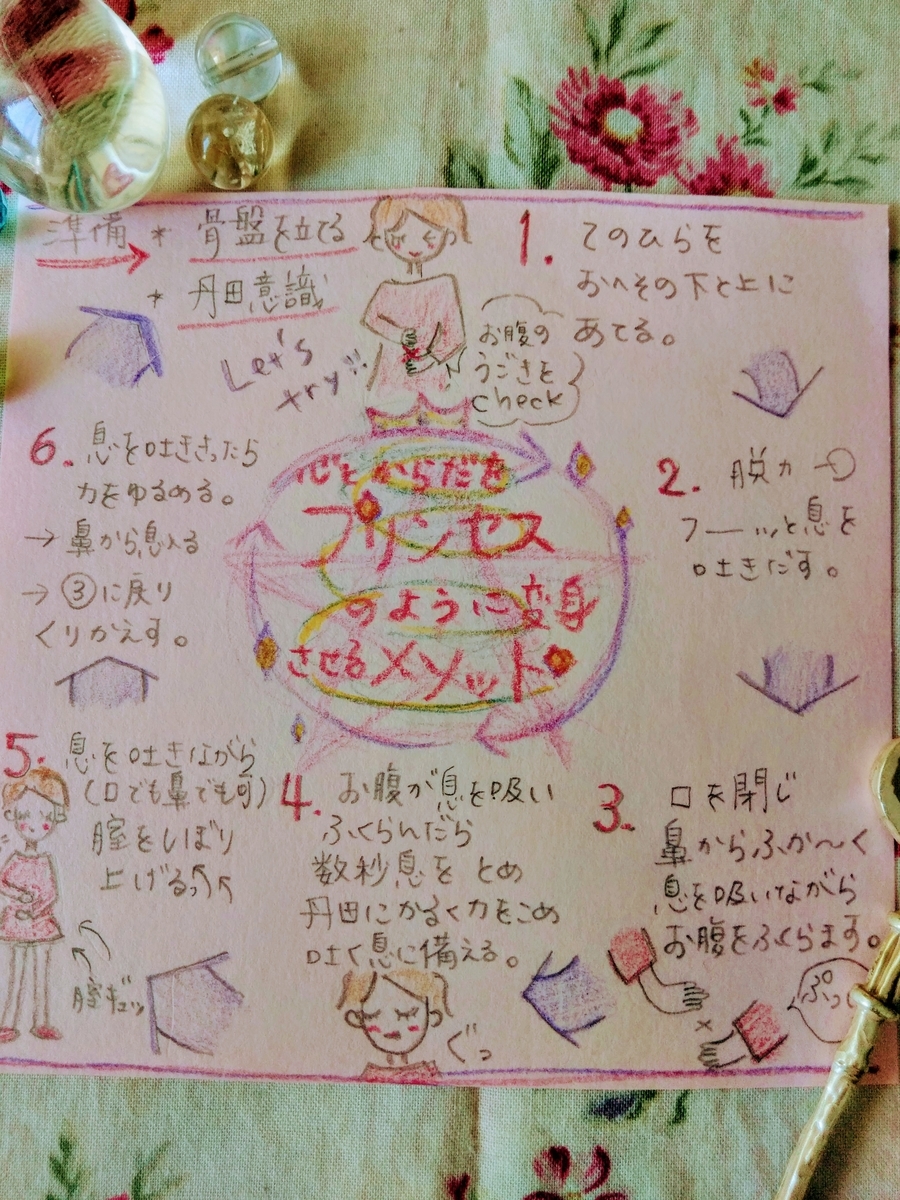 準備 * 骨盤を立てる
* 丹田意識
Let's
try!!
心とからだを
プリンセス
のように変身
させるメソッド
1. てのひらを
おへその下と上に
あてる。
お腹の
うごきを
check
2. 脱力
フーーッと息を
吐きだす。
3. 口を閉じ
鼻からふか〜く
息を吸いながら
お腹をふくらます。
ぷっ
4. お腹が息を吸い
ふくらんだら
数秒息をとめ
丹田にかるく力をこめ
吐く息に備える。
ぐっ
5. 息を吐きながら
(口でも鼻でも可)
膣をしぼり
上げる。
膣ギュッ
6. 息を吐ききったら
力をゆるめる。
→ 鼻から息入る
→ ③に戻り
くりかえす。